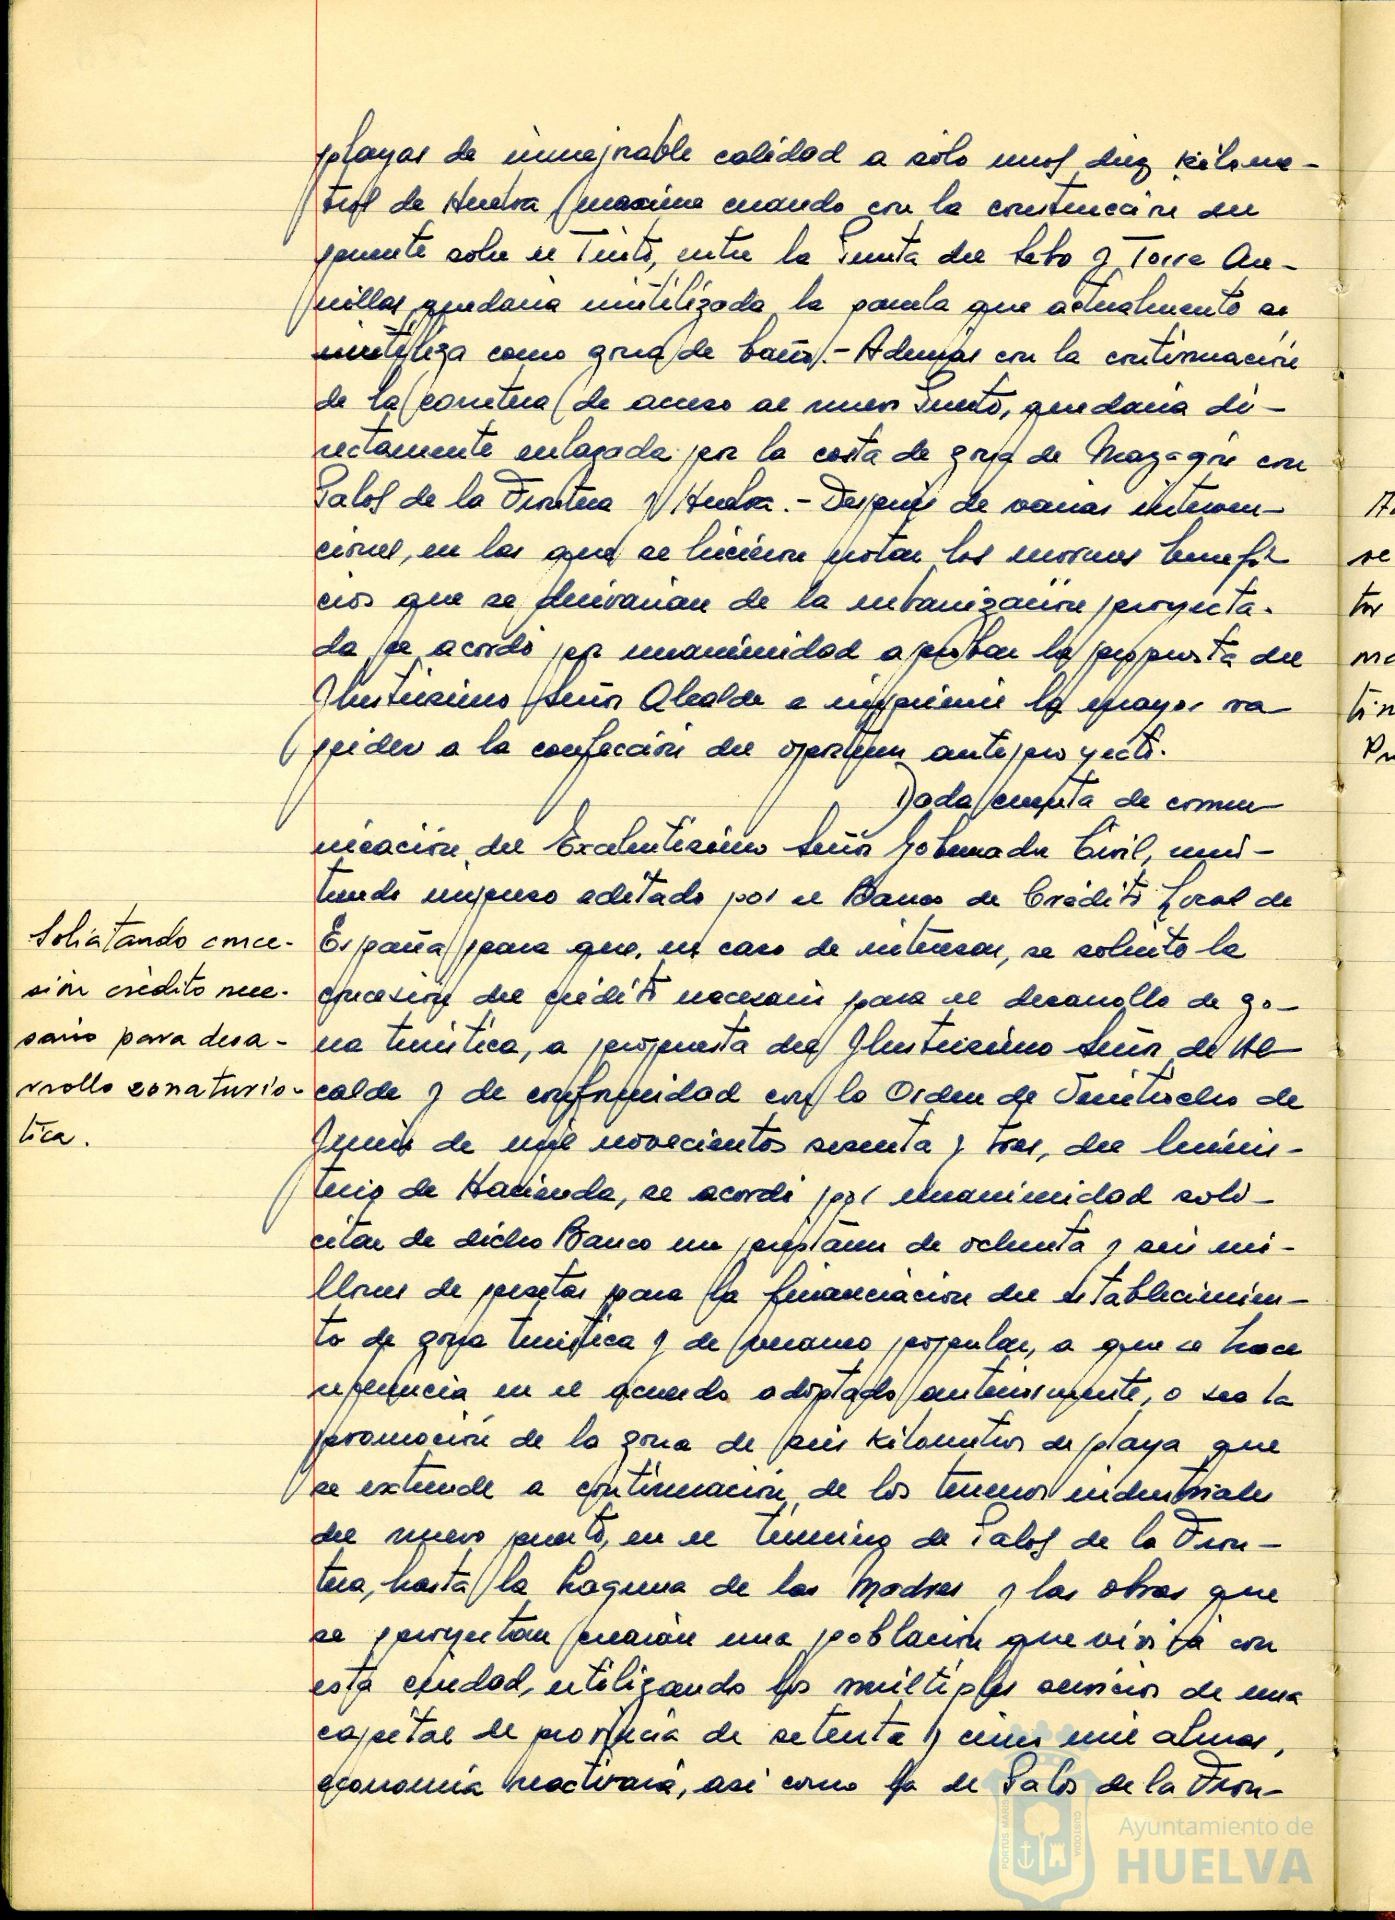 playas de inmejorable calidad a sólo unos diez kilóme-
tros de Huelva, maxime cuando con la construcción del
puente sobre el Tinto, entre la Punta del Sebo y Torre Are-
nillas quedaria inutilizada la parcela que actualmente se
utiliza como zona de baño.- Además con la continuación
de la carretera de acceso al nuevo Puerto, quedaria di-
rectamente enlazada por la costa de zona de Mazagón con
Palos de la Frontera y Huelva.- Después de varias interven-
ciones, en las que se hicieron notar los enormes benefi-
cios que se derivarian de la urbanización proyecta-
da se acordó por unanimidad aprobar la propuesta del
Ilustrisimo Señor Alcalde e imprimir la mayor ra-
pidez a la confección del oportuno anteproyecto.
Dada cuenta de comu-
nicación del Excelentisimo Señor Gobernador Civil, remi-
tiendo impreso editado por el Banco de Crédito Local de
Solicitando conce-
sión crédito nece-
sario para desa-
rrollo zona turis-
tica.
España para que, en caso de interesar, se solicite la
concesión del crédito necesario para el desarrollo de zo-
na turistica, a propuesta del Ilustrisimo Señor de Al-
calde y de conformidad con la Orden de Veintiocho de
Junio de mil novecientos sesenta y tres, del Minis-
terio de Hacienda, se acordó por unanimidad soli-
citar de dicho Banco un préstamo de ochenta y seis mi-
llones de pesetas para la financiación del establecimien-
to de zona turistica y de verano popular, a que se hace
referencia en el acuerdo adoptado anteriormente, o sea la
promoción de la zona de seis kilómetros de playa que
se extiende a continuación de los terrenos industriales
del nuevo puerto, en el término de Palos de la Fron-
tera, hasta la Laguna de las Madres y las obras que
se proyectan crearán una población que vivirá con
esta ciudad, utilizando los múltiples servicios de una
capital de provincia de setenta y cinco mil almas,
economia reactivará, asi como la de Palos de la Fron-
Ayuntamiento de
HUELVA
PORTUS MARIS
CUSTODIA
se
tor